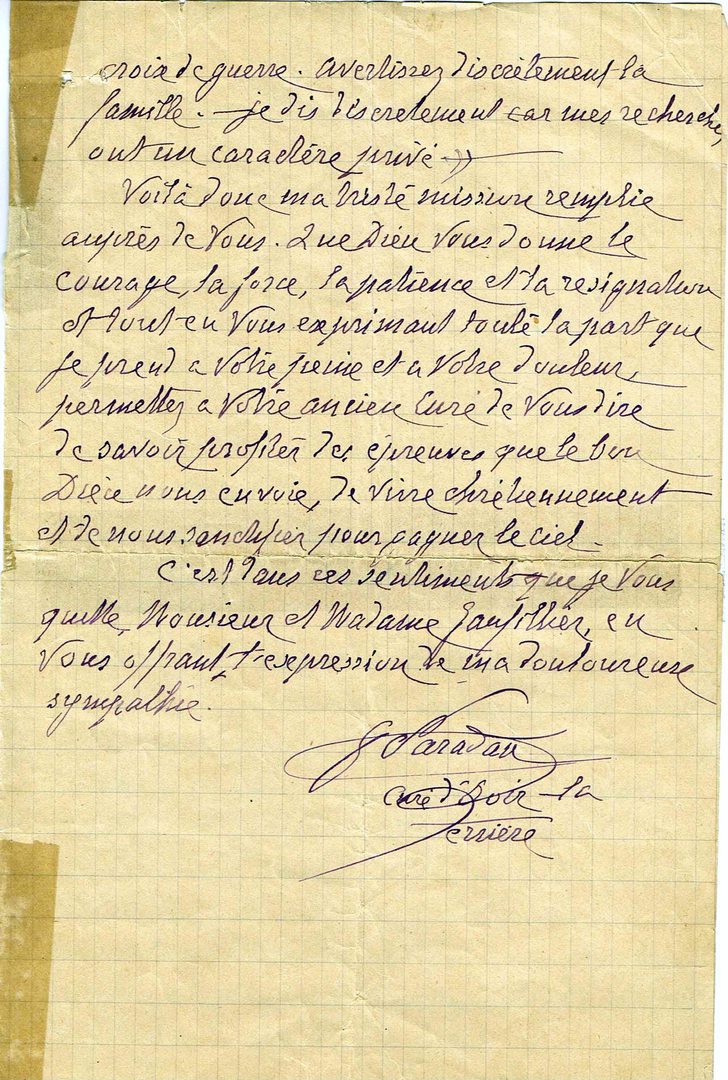 croix de guerre. Avertissez discrètement la
famille. — je dis discretement car mes recherches
ont un caractère privé »—
Voilà donc ma triste mission remplie
auprès de Vous. Que Dieu Vous donne le
courage, la force, la patience et la resignation
et tout en Vous exprimant toute la part que
je prend a Votre peine et a Votre douleur,
permettez a Votre ancien Curé de Vous dire
de savoir profiter des épreuves que le bon
Dieu nous envoie, de vivre chrétiennement
et de nous sanctifier pour gagner le ciel.
C'est dans ces sentiments que je Vous
quitte, Monsieur et Madame en
Vous offrant l'expression de ma douloureuse
sympathie.
G Paradan
curé d' Soir-la
Serrière